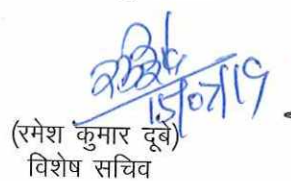 15/07/19
(रमेश कुमार दूबे)
विशेष सचिव